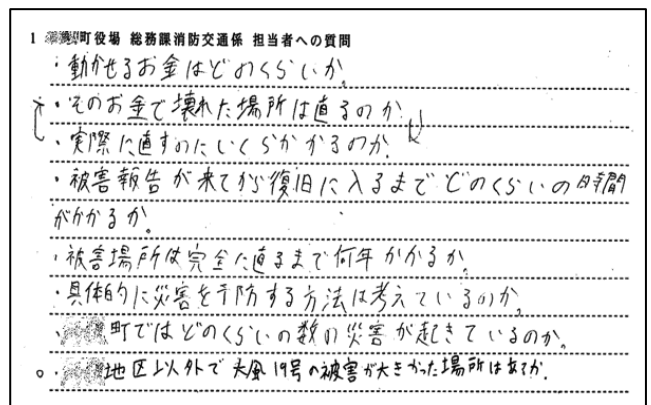 1 町役場 総務課消防交通係 担当者への質問
・動かせるお金はどのくらいか。
・そのお金で壊れた場所は直るのか
・実際に直すのにいくらかかるのか。
・被害報告が来てから復旧に入るまでどのくらいの時間
がかかるか。
・被害場所は完全に直るまで何年かかるか。
・具体的に災害を予防する方法は考えているのか。
・町ではどのくらいの数の災害が起きているのか。
○・地区以外で台風19号の被害が大きかった場所はあるか。